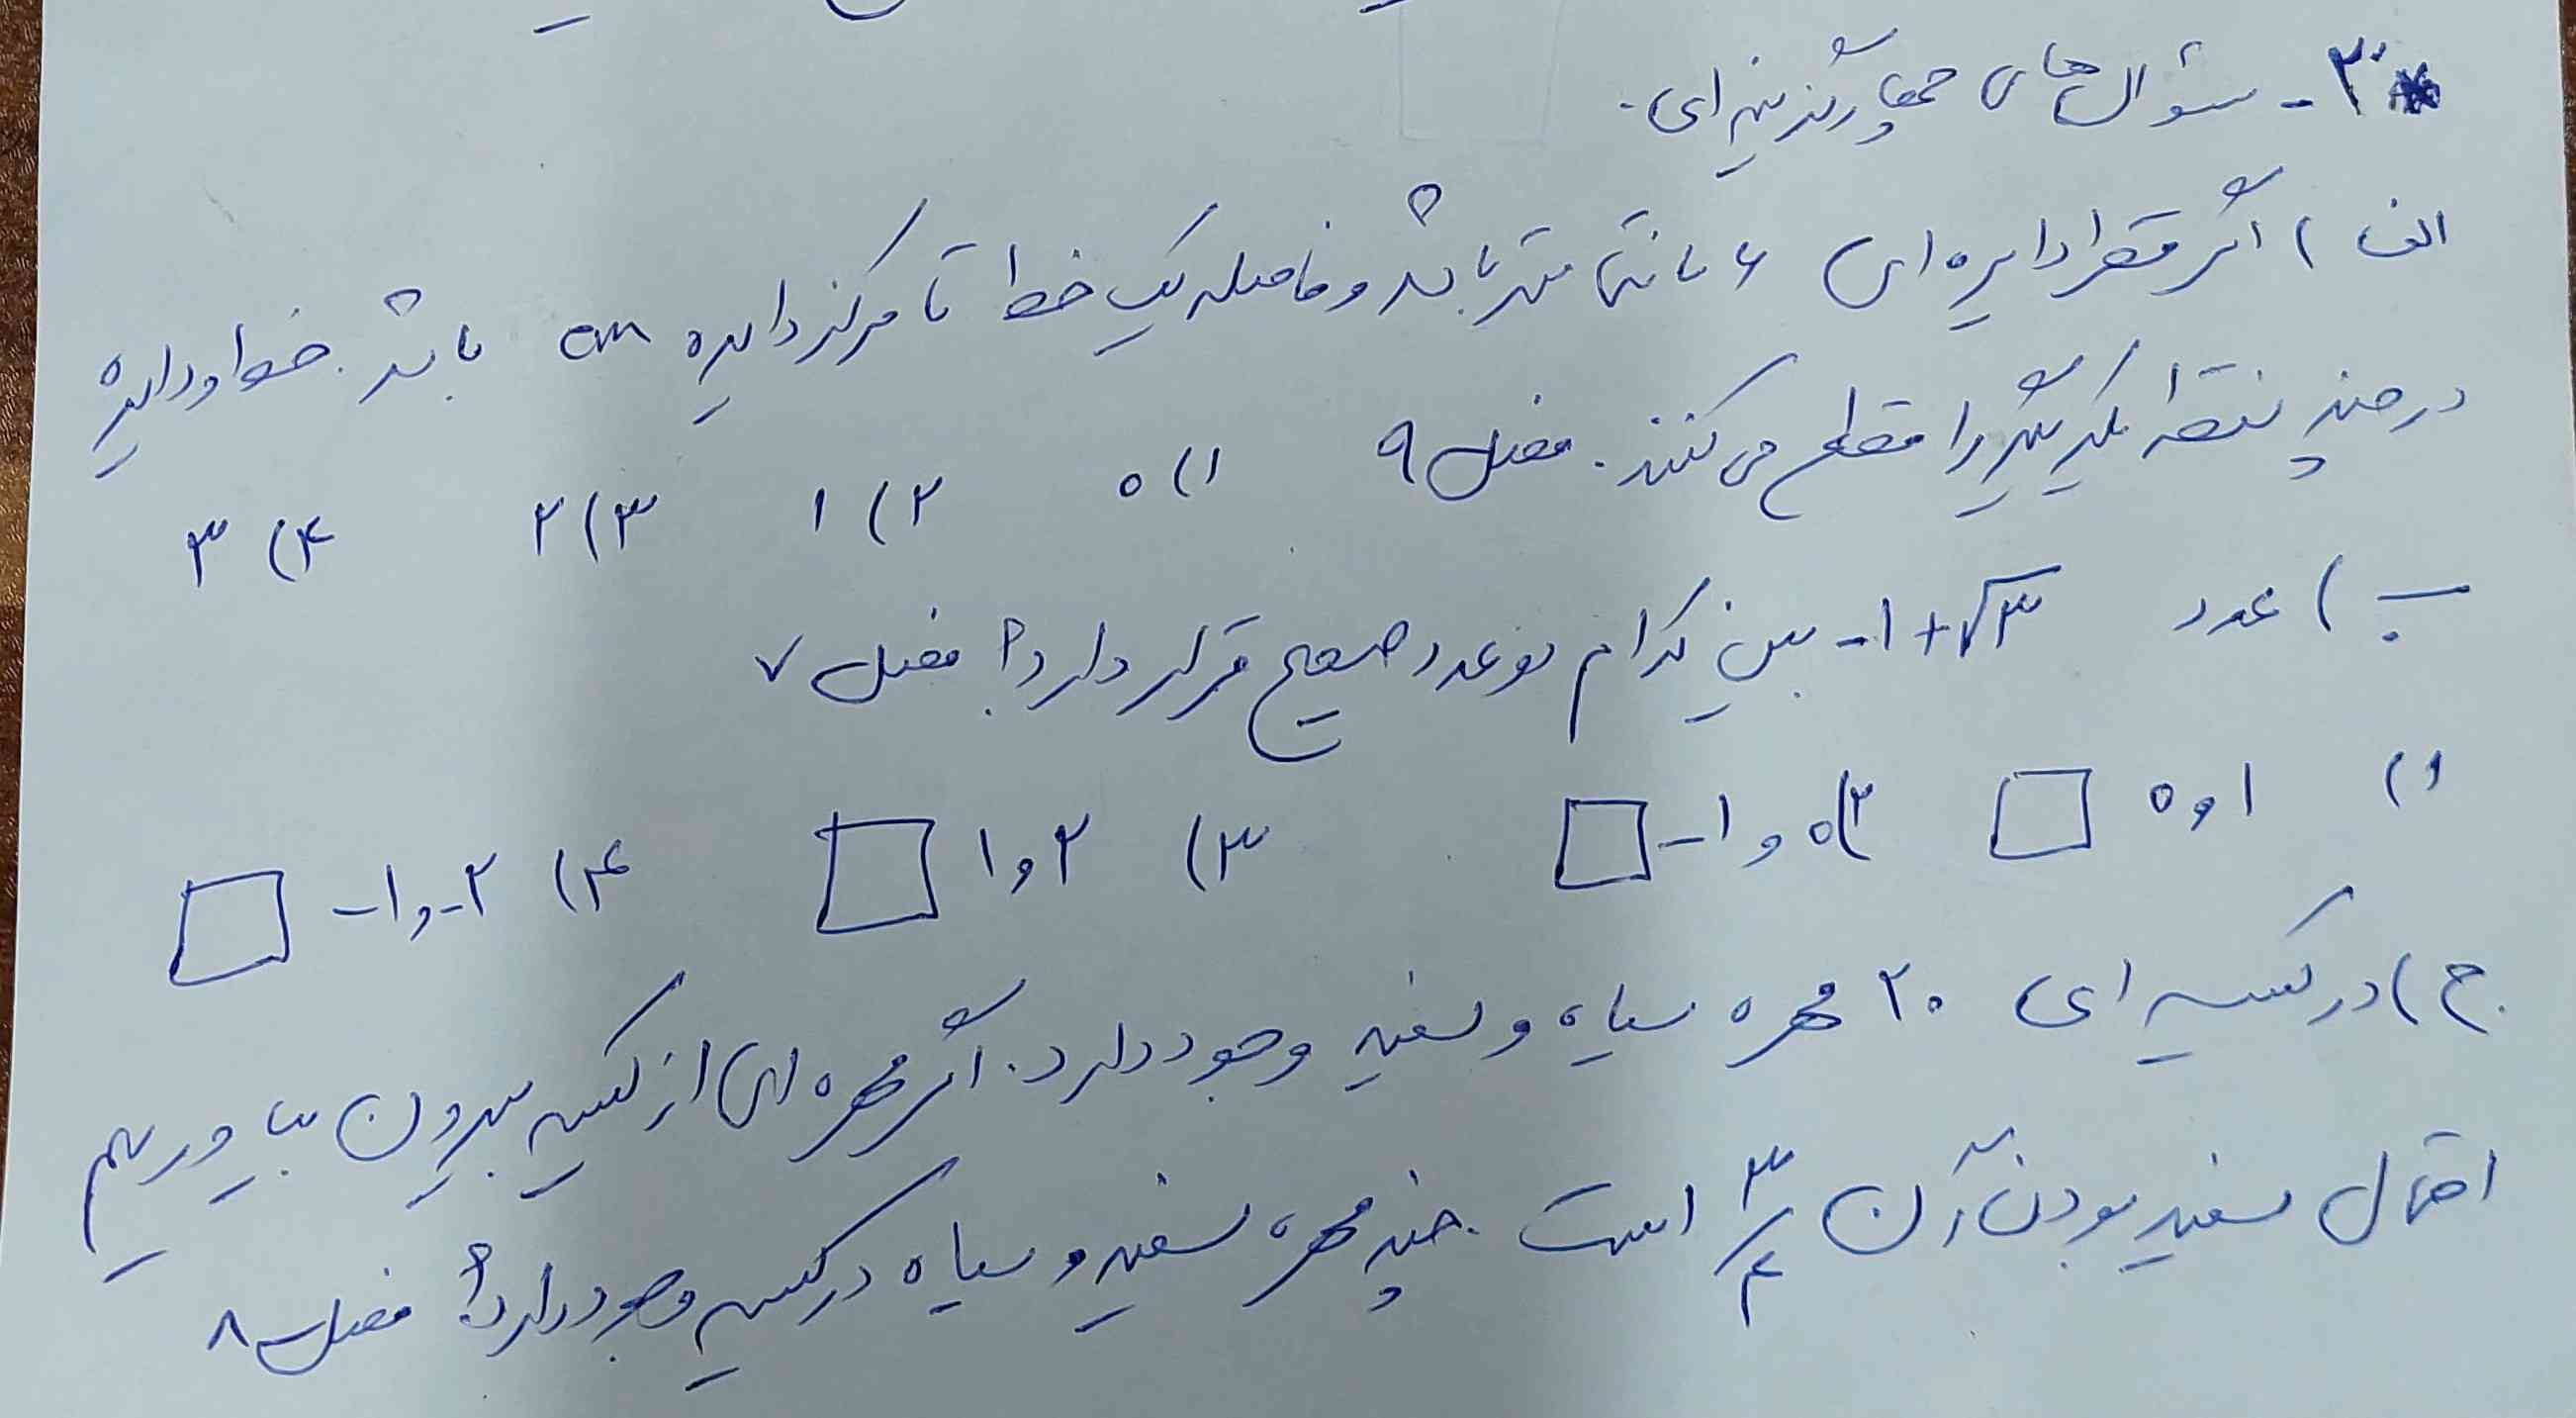 ۳- سؤال های چهارگزینه ای.
الف) اگر قطر دایره ای ۶ سانتی متر باشد و فاصله یک خط تا مرکز دایره cm ۵ باشد. خط و دایره
در چند نقطه یکدیگر را قطع می کنند. فصل ۹ ۱) ۰ ۲) ۱ ۳) ۲ ۴) ۳
ب) عدد -۱+√۳ بین کدام دو عدد صحیح قرار دارد؟ فصل ۷
۱) ۱ و ۰ □ ۲) ۰ و ۱- □ ۳) ۲ و ۱ □ ۴) ۲- و ۱- □
ج) در کیسه ای ۲۰ مهره سیاه و سفید وجود دارد. اگر مهره ای از کیسه بیرون بیاوریم
احتمال سفید بودن آن ۳/۴ است. چند مهره سفید و سیاه در کیسه وجود دارد؟ فصل ۸